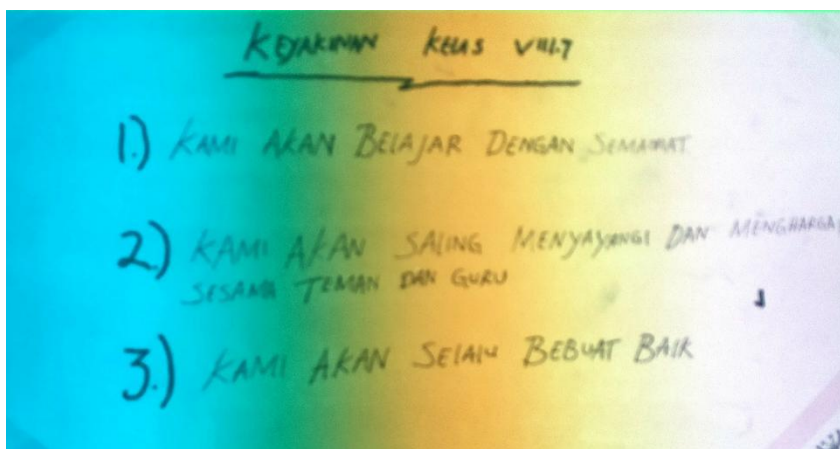 KEYAKINAN KELAS VIII.7
1.) KAMI AKAN BELAJAR DENGAN SEMANGAT
2.) KAMI AKAN SALING MENYAYANGI DAN MENGHARGAI
SESAMA TEMAN DAN GURU
3.) KAMI AKAN SELALU BEBUAT BAIK